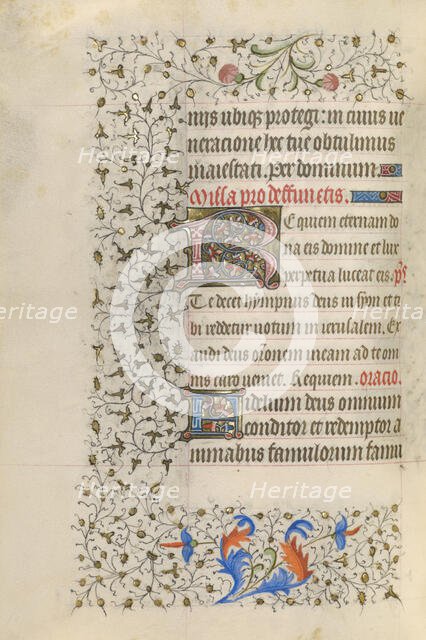 mis ubiqz protegi: in cuius ue
neracione hec tue obtulimus
maiestati. Per dominum.
Missa pro deffunctis.
Requiem eternam do
na eis domine et lux
perpetua luceat eis. ps
Te decet hympnus deus in syon et ti
bi reddetur uotum in ierusalem. Ex
audi deus oronem meam ad te om
nis caro veniet. Requiem. oracio.
Fidelium deus omnium
conditor et redemptor a
nimabus famulorum famu
Heritage
Heritage
Heritage
Heritage
Heritage
Heritage
Heritage
Heritage